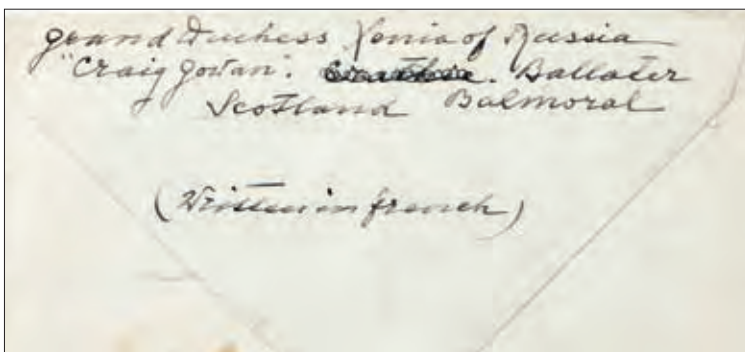 grand Duchess Xenia of Russia
"Craig gowan". Ballater
Scotland Balmoral
(Written in french)